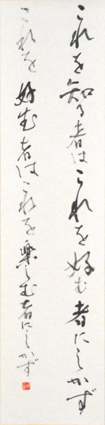 これを知る者はこれを好む者にしかず
これを好む者はこれを楽しむ者にしかず